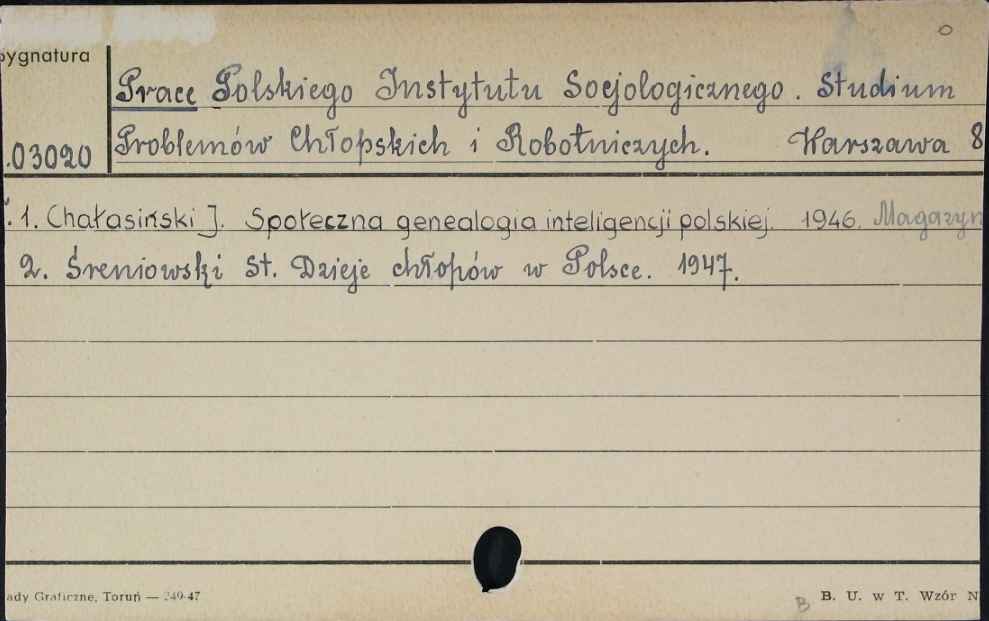 ygnatura
Prace Polskiego Instytutu Socjologicznego. Studium
.03020 Problemów Chłopskich i Robotniczych. Warszawa 8
1. Chałasiński J. Społeczna genealogia inteligencji polskiej. 1946. Magazyn
2. Śreniowski St. Dzieje chłopów w Polsce. 1947.
ady Graficzne, Toruń — 249-47
B B. U. w T. Wzór N